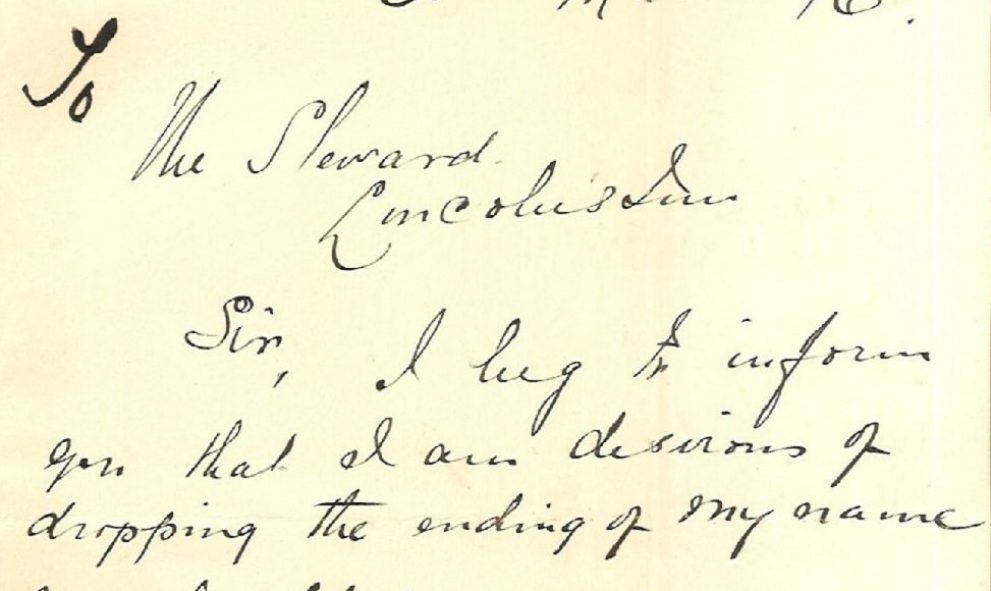 To
The Steward
Lincoln's Inn
Sir, I beg to inform
you that I am desirous of
dropping the ending of my name